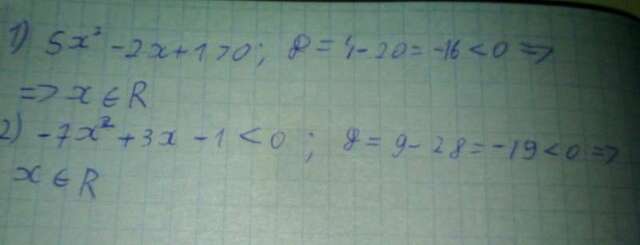 1) 5x² - 2x + 1 > 0; D = 4 - 20 = -16 < 0 =>
=> x ∈ R
2) -7x² + 3x - 1 < 0; D = 9 - 28 = -19 < 0 =>
x ∈ R